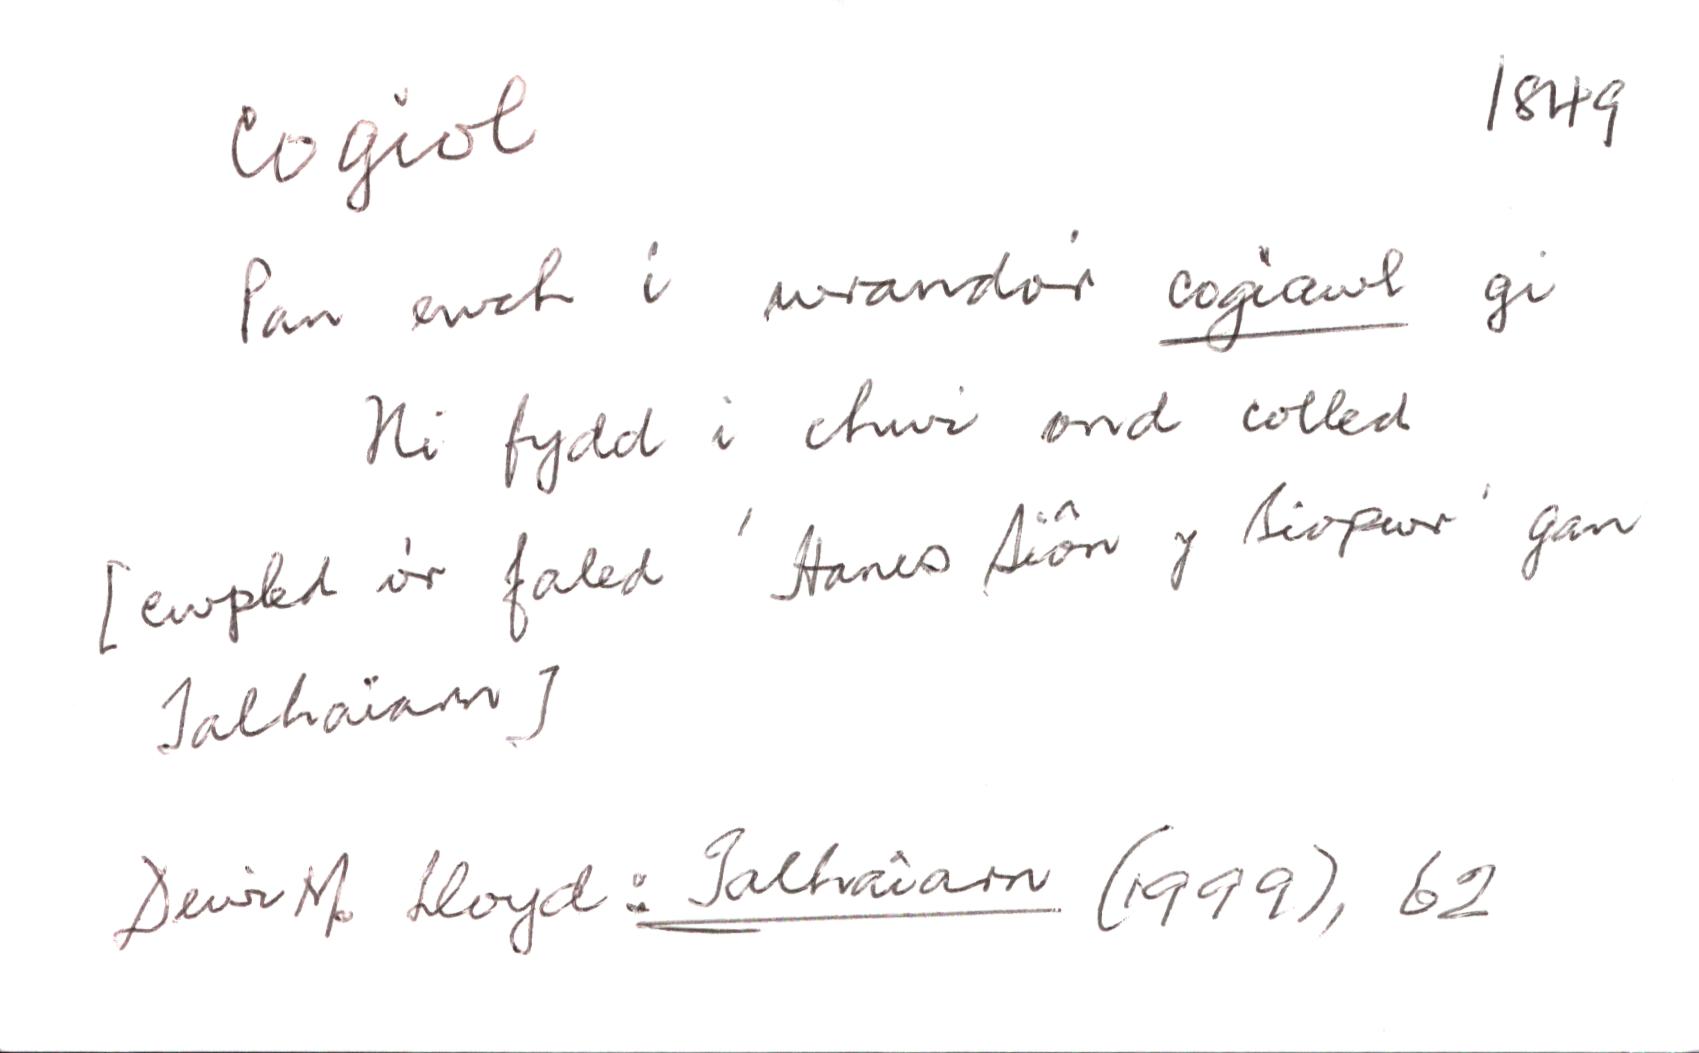 cogiol 1849
Pan ewch i wrando'r cogiawl gi
Ni fydd i chwi ond colled
[cwpled o'r faled 'Hanes Siôn y Siopwr' gan
Talhaiarn]
Dewi M. Lloyd: Talhaiarn (1999), 62